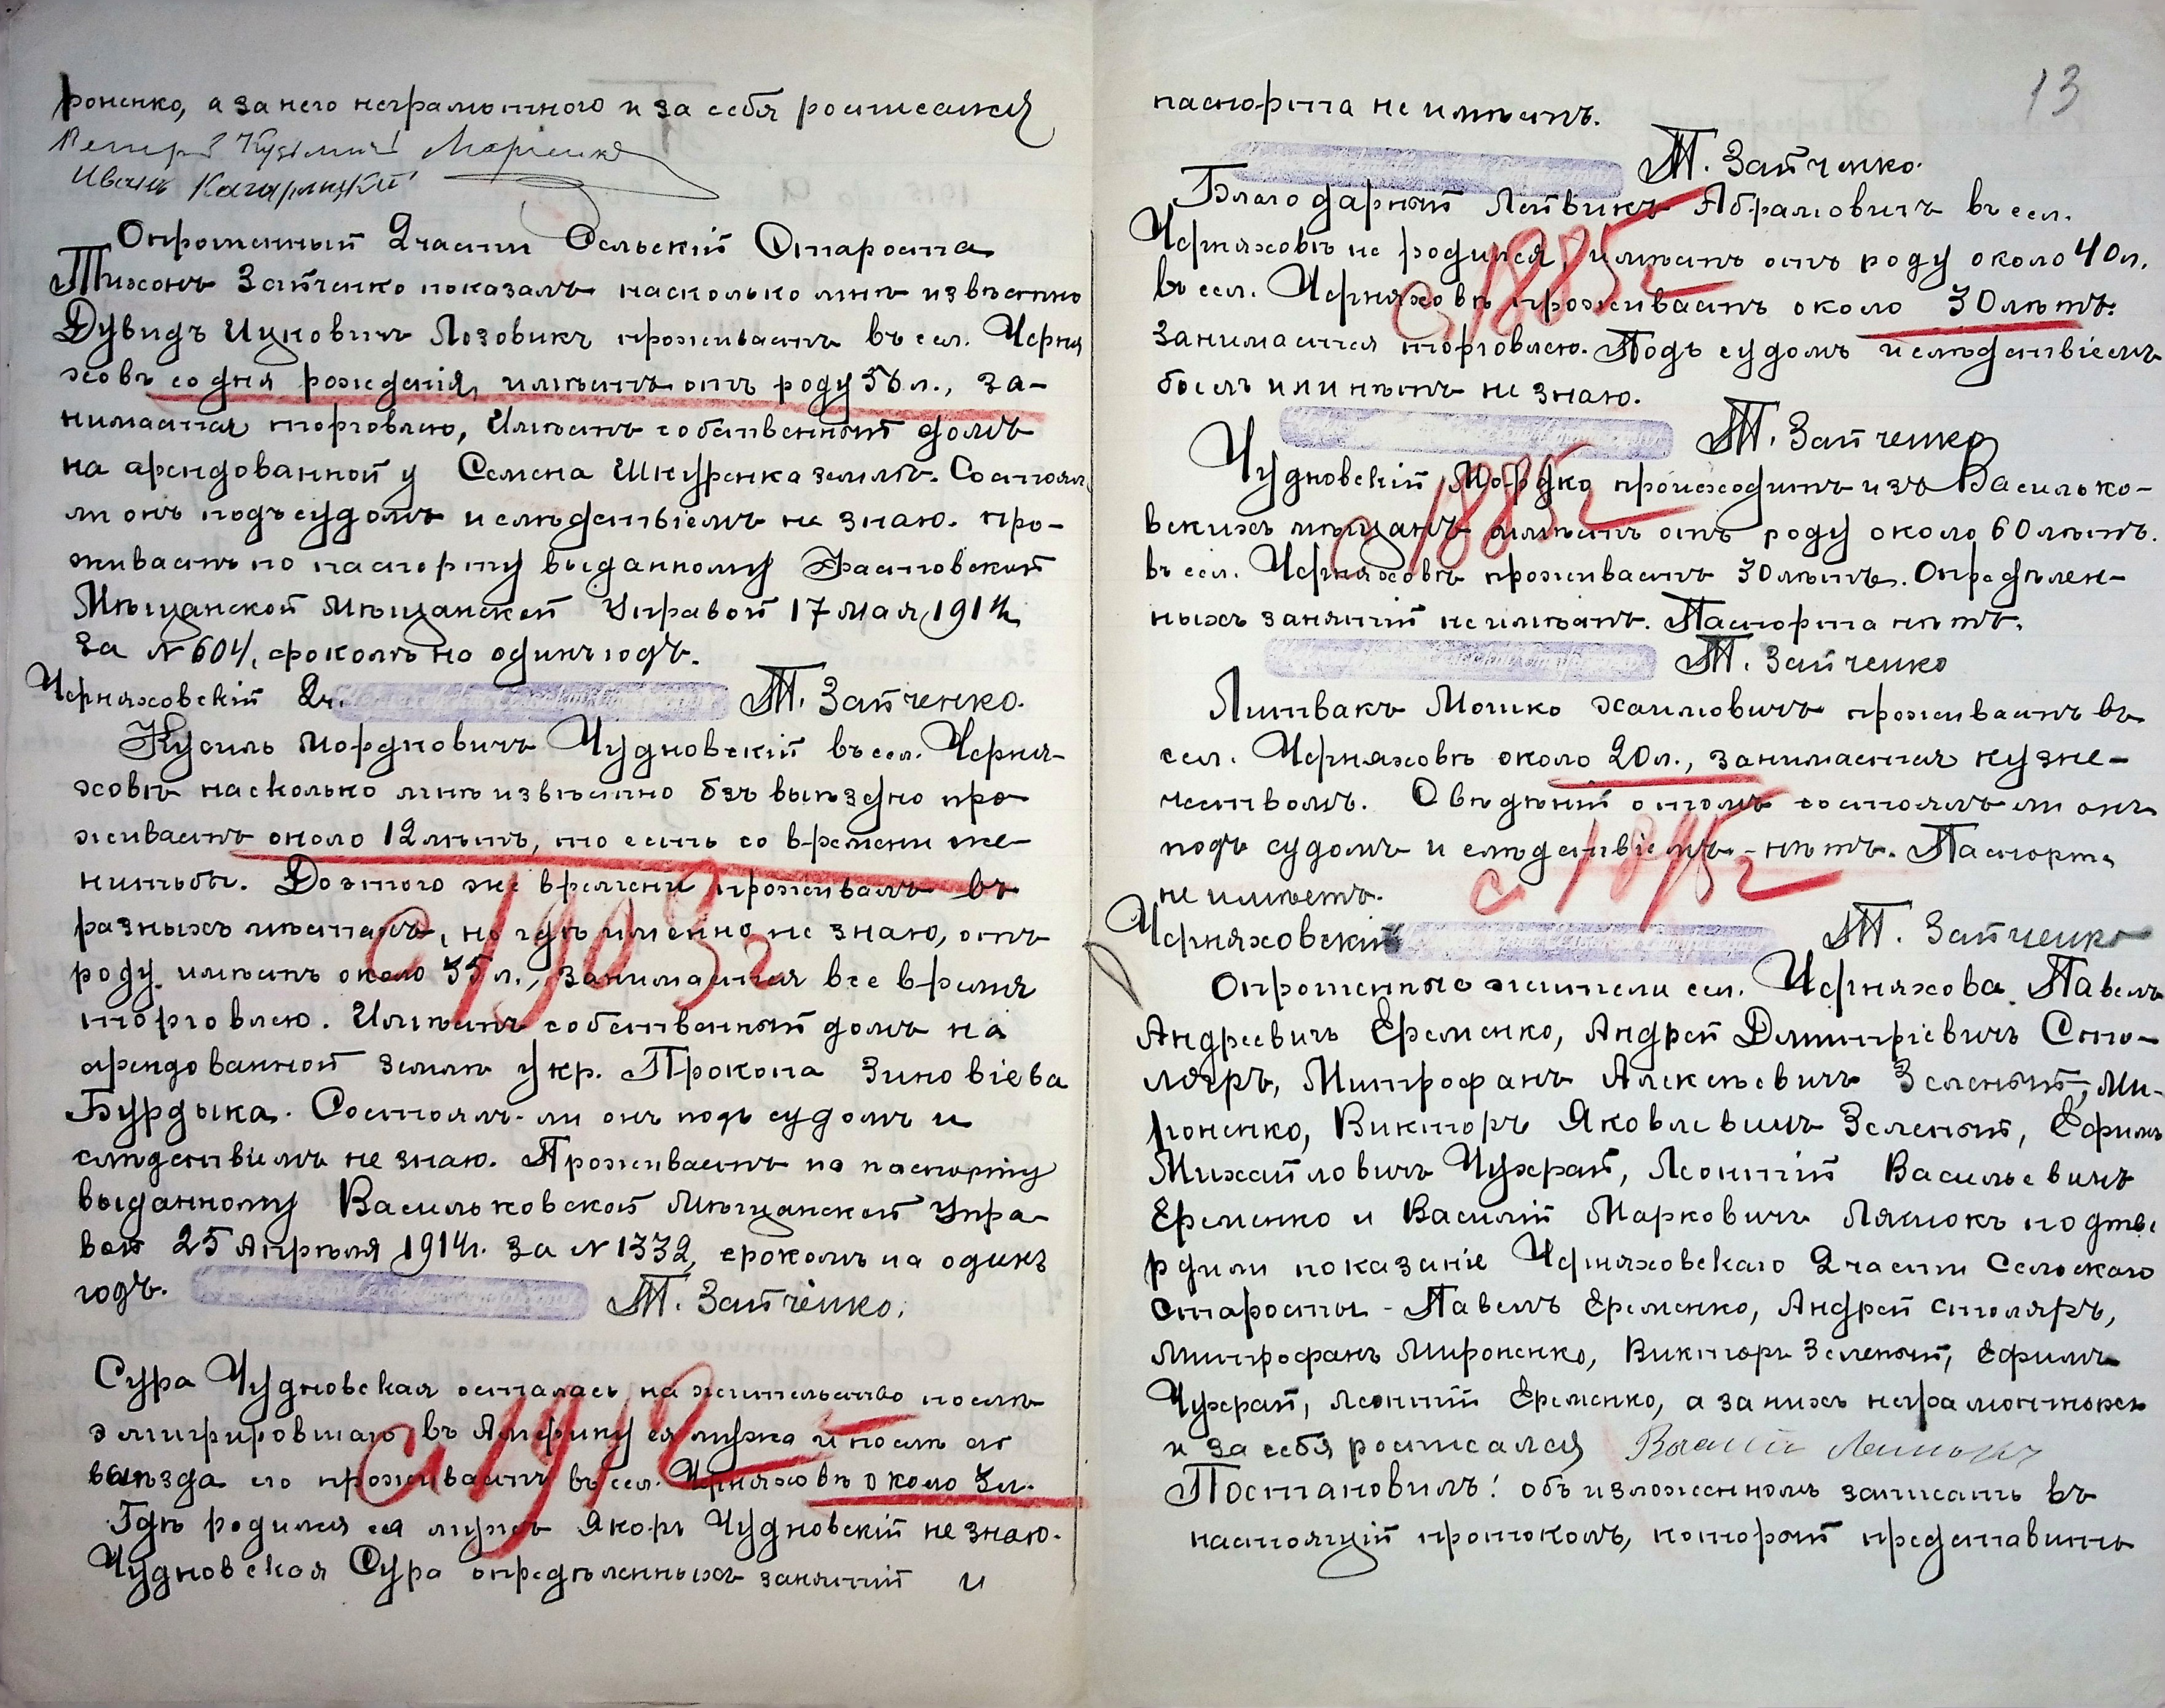 роненко, а за него неграмотного и за себя росписался
Иванъ Кагарлицкій
Опрошенный 2 части Сельскій Староста
Тихонъ Зайченко показалъ насколько мнѣ извѣстно
Дувидъ Ицковичъ Лозовикъ проживаетъ въ сел. Черня
ховѣ со дня рожденія, имѣетъ отъ роду 36 л., за-
нимается торговлею, Имѣетъ собственный домъ
на арендованной у Семена Шкуренка землѣ. Состоял
ли онъ подъ судомъ и слѣдствіемъ не знаю. Про-
живаетъ по паспорту выданному Фастовской
Мѣщанской Мѣщанской Управой 17 мая 1914 г.
за № 604, срокомъ на одинъ годъ.
Черняховскій 2 ч. Т. Зайченко.
Кусиль Мордковичъ Чудновскій въ сел. Черня-
ховѣ насколько мнѣ извѣстно безъ выѣздно про
живаетъ около 12 лѣтъ, то есть со времени же-
нитьбы. До этого же времени проживалъ въ
с 1903 г
разныхъ мѣстахъ, но гдѣ именно не знаю, отъ
роду имѣетъ около 35 л., занимается все время
торговлею. Имѣетъ собственный домъ на
арендованной землѣ у кр. Прокопа Зиновіева
Бурдыка. Состоялъ-ли онъ подъ судомъ и
слѣдствіемъ не знаю. Проживаетъ по паспорту
выданному Васильковской Мѣщанской Упра
вой 25 Апрѣля 1914 г. за № 1332, срокомъ на одинъ
годъ. Т. Зайченко.
Сура Чудновская осталась на жительство послѣ
эмигрировшаго въ Америку ея мужа и послѣ его
с 1912 г
выѣзда его проживаетъ въ сел. Черняховѣ около 3 л.
Гдѣ родился ея мужъ Якоръ Чудновскій не знаю.
Чудновская Сура опредѣленныхъ занятій и
13
паспорта не имѣетъ.
Т. Зайченко.
Благодарный Лейвикъ Абрамовичъ въ сел.
Черняховѣ не родился, имѣетъ отъ роду около 40 л.
с 1885 г
въ сел. Черняховѣ проживаетъ около 30 лѣтъ.
Занимается торговлею. Подъ судомъ и слѣдствіемъ
былъ или нѣтъ не знаю.
Т. Зайченко
Чудновскій Мордко происходитъ изъ Василько-
с 1885 г
вскихъ мѣщанъ имѣетъ отъ роду около 60 лѣтъ.
въ сел. Черняховѣ проживаетъ 30 лѣтъ. Опредѣлен-
ныхъ занятій не имѣетъ. Паспорта нѣтъ.
Т. Зайченко
Литвакъ Мошко Хаимовичъ проживаетъ въ
сел. Черняховѣ около 20 л., занимается кузне-
чествомъ. Свѣдѣній о томъ состоялъ ли онъ
подъ судомъ и слѣдствіемъ - нѣтъ. Паспорта
с 1895 г
не имѣетъ.
Черняховскій Т. Зайченко
Опрошенные жители сел. Черняхова Павелъ
Андреевичъ Еременко, Андрей Дмитріевичъ Сто-
ляръ, Митрофанъ Алексѣевичъ Зеленый, Ми-
роненко, Викторъ Яковлевичъ Зеленый, Ефимъ
Михайловичъ Чухрай, Леонтій Васильевичъ
Еременко и Василій Марковичъ Ляшокъ подтве
рдили показаніе Черняховскаго 2 части Сельскаго
Старосты - Павелъ Еременко, Андрей Столяръ,
Митрофанъ Мироненко, Викторъ Зеленый, Ефимъ
Чухрай, Леонтій Еременко, а за нихъ неграмотныхъ
и за себя росписался
Постановилъ: объ изложенномъ записать въ
настоящій протоколъ, который представить